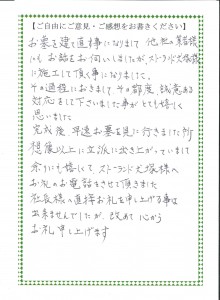 【ご自由にご意見・ご感想をお書きください】
お墓を建て直す事になりまして 他社の業者様
にも お話をお伺いしましたが ストーランド犬塚様
に施工して頂く事になりました。
その過程におきまして、その都度、誠意ある
対応をして下さいました事がとても嬉しく
思いました
完成後 早速お墓を見に行きました所
想像以上に立派に出き上がっていまして
余りにも嬉しくて ストーランド犬塚様へ
お礼のお電話をさせて頂きました
社長様へ直接お礼を申し上げる事は
出来ませんでしたが、改めて 心から
お礼申し上げます